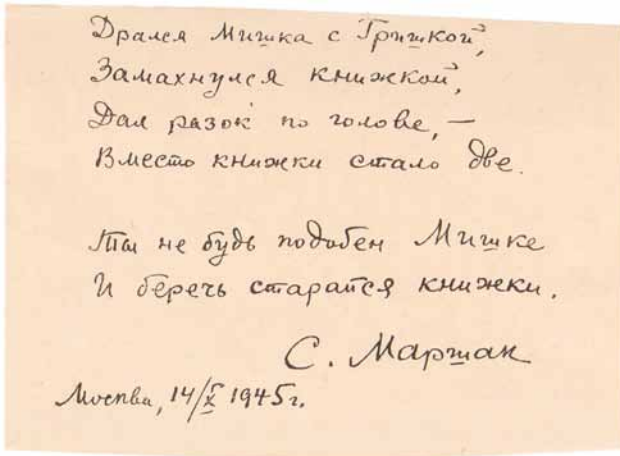 Дрался Мишка с Гришкой,
Замахнулся книжкой,
Дал разок по голове, —
Вместо книжки стало две.
Ты не будь подобен Мишке
И беречь старайся книжки.
С. Маршак
Москва, 14/X 1945 г.